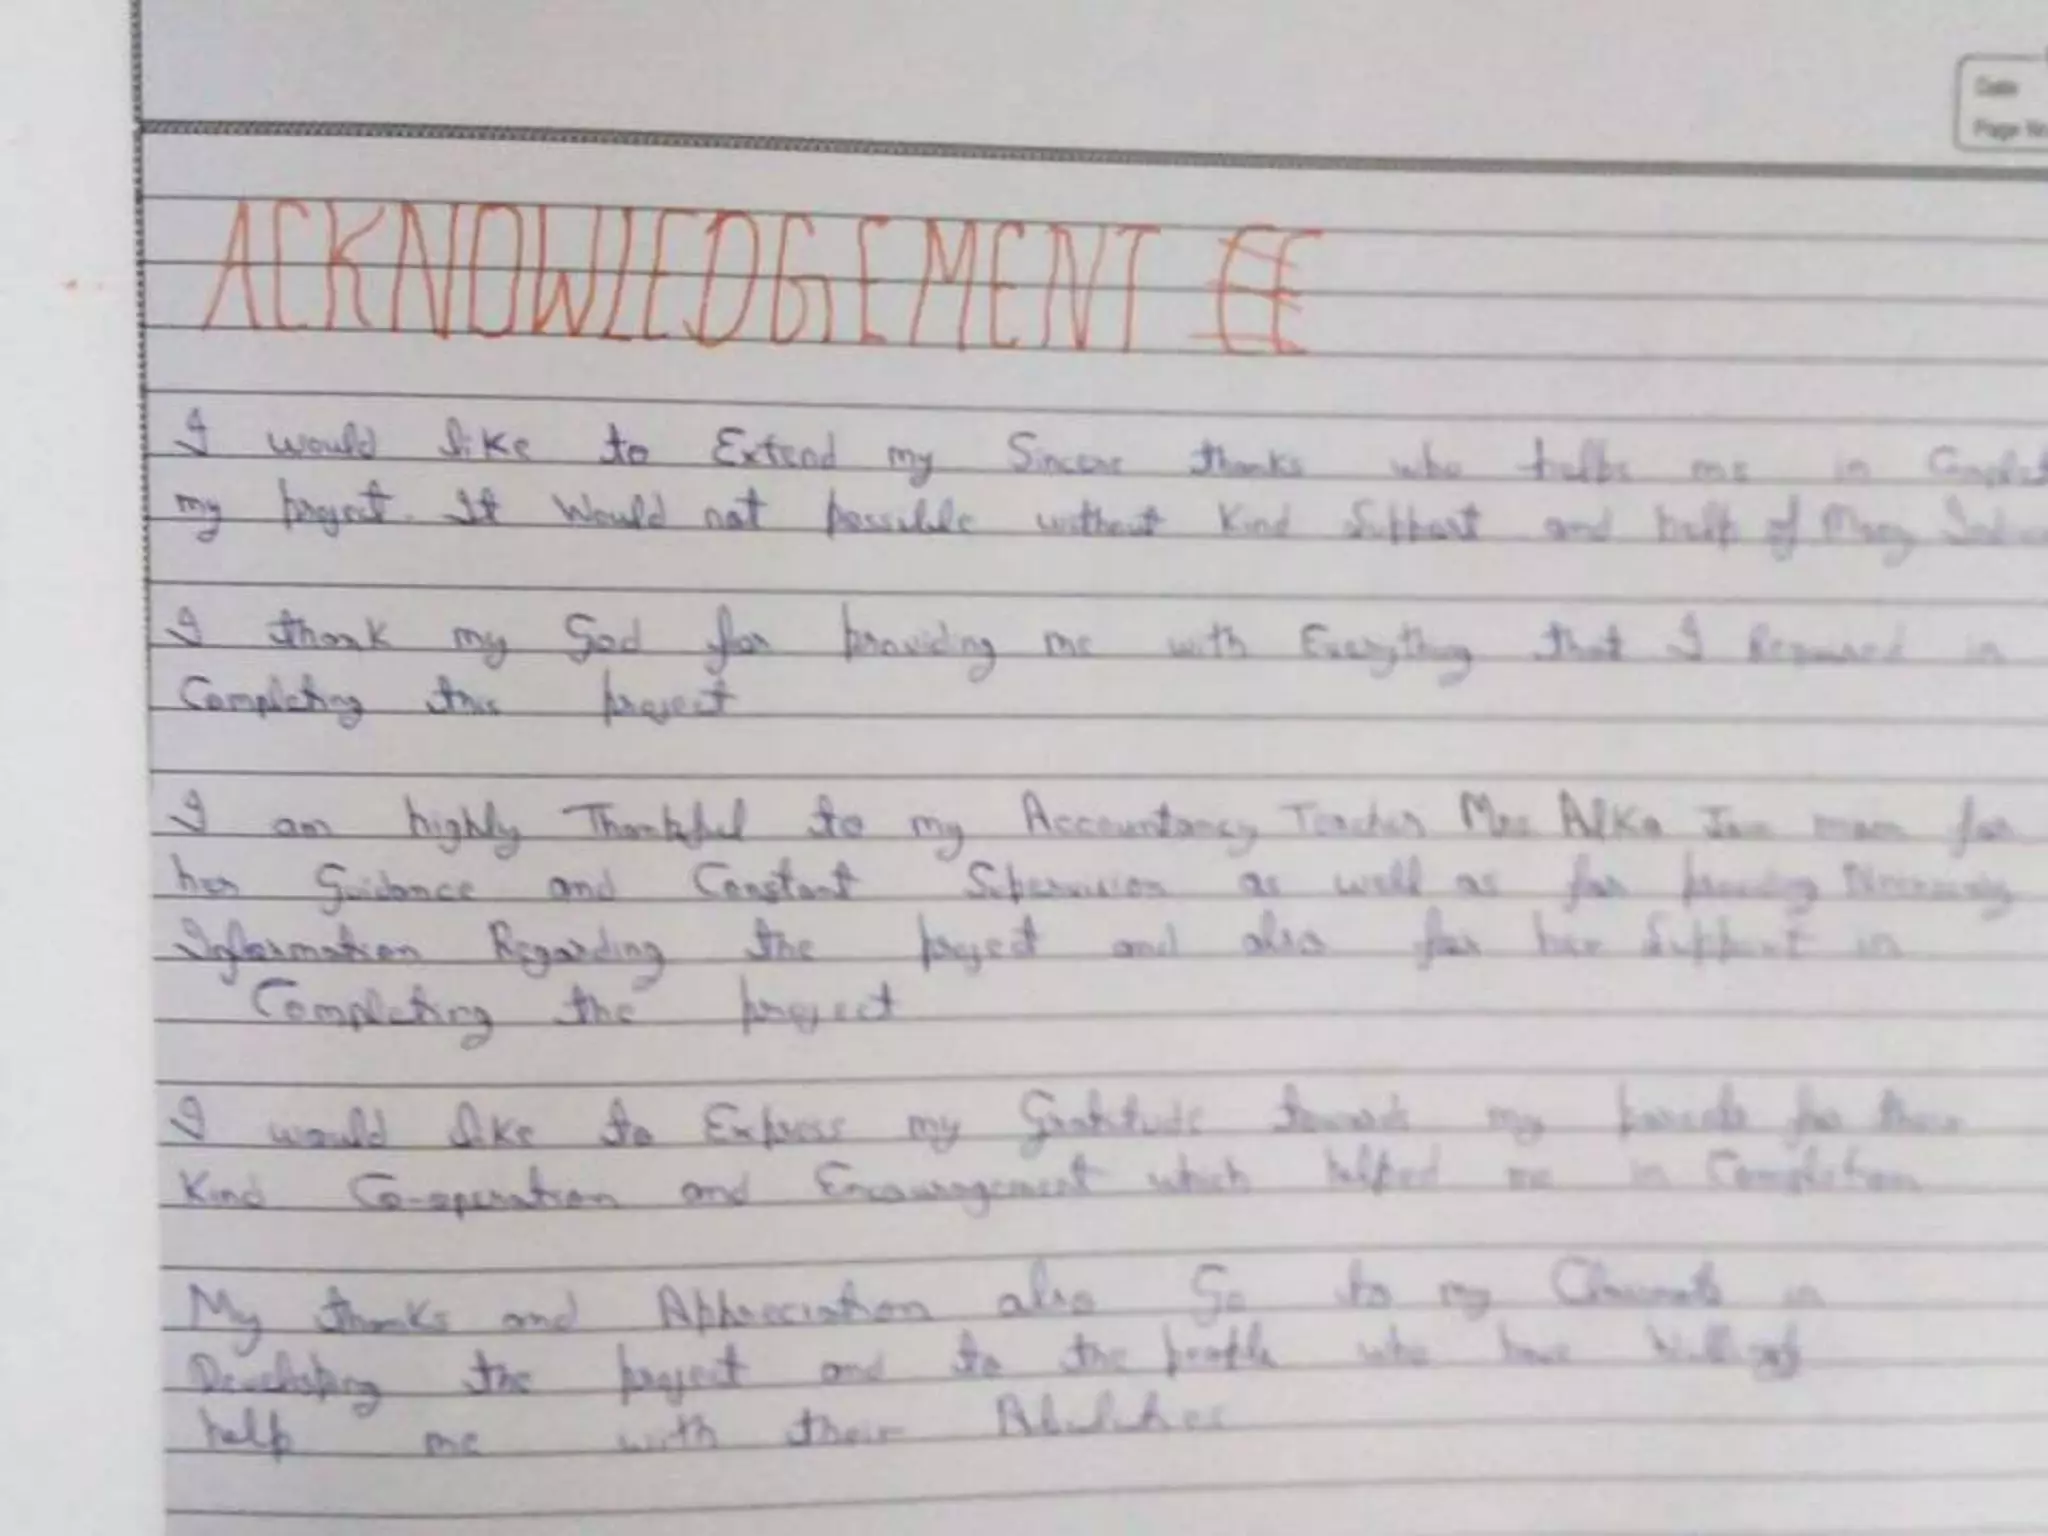 Date
Page No
ACKNOWLEDGEMENT
I would like to Extend my Sincere thanks who helps me in
my project. It Would not possible without Kind Support and help of Many
I thank my God for providing me with Everything that I Required in
Completing this project
I am highly Thankful to my Accountancy Teacher Mrs Alka Jain mam for
her Guidance and Constant Supervision as well as for providing Necessary
Information Regarding the project and also for her Support in
Completing the project
I would like to Express my Gratitude towards my parents for their
Kind Co-operation and Encouragement which helped me in Completion
My thanks and Appreciation also Go to my in
Developing the project and to the people who have
help me with their Abilities